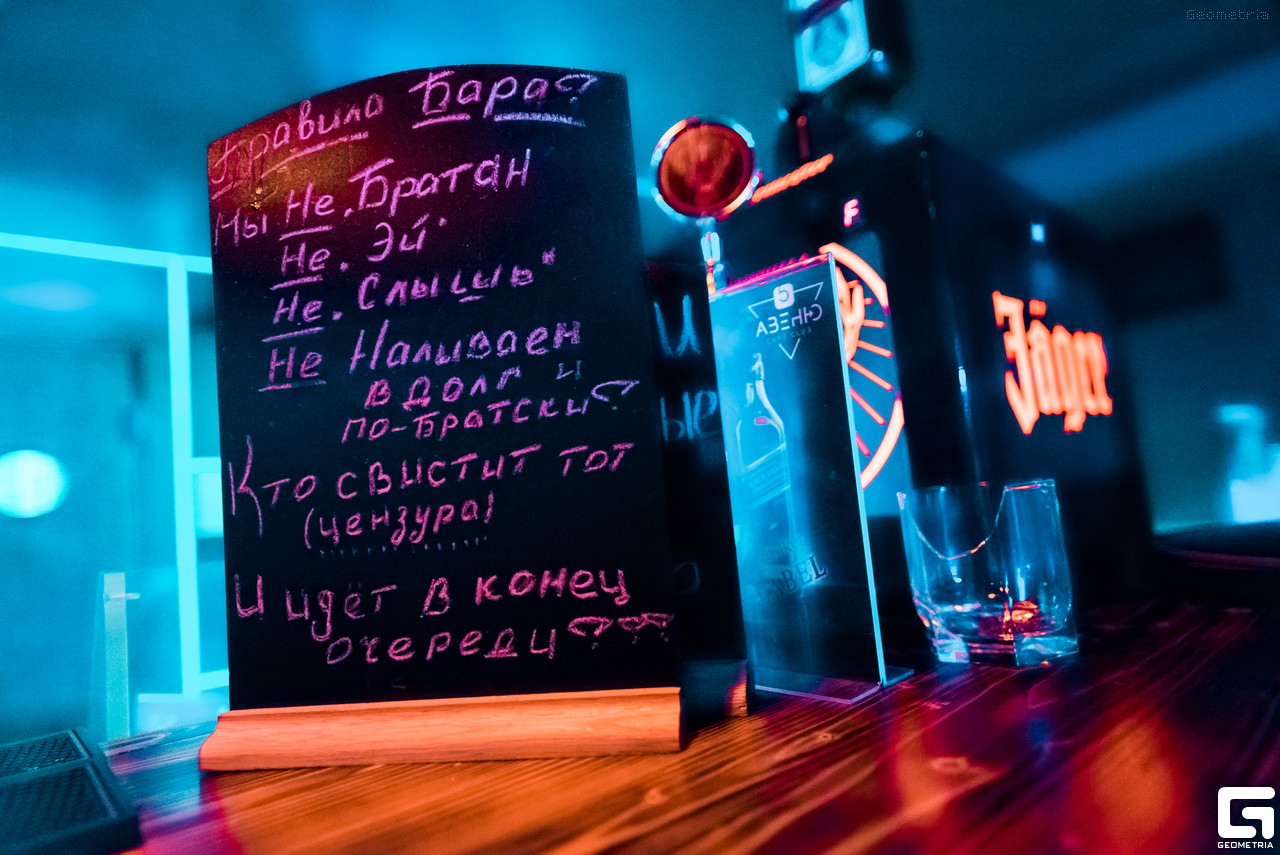 Правила Бара♡
Мы Не "Братан"
Не "Эй"
Не "Слышь"
Не Наливаем
в долг и
по-Братски♡
Кто свистит тот
(цензура)
И идёт в конец
очереди♡♡♡
и
ые
СИНЕВА
Jäger
Geometria
GEOMETRIA